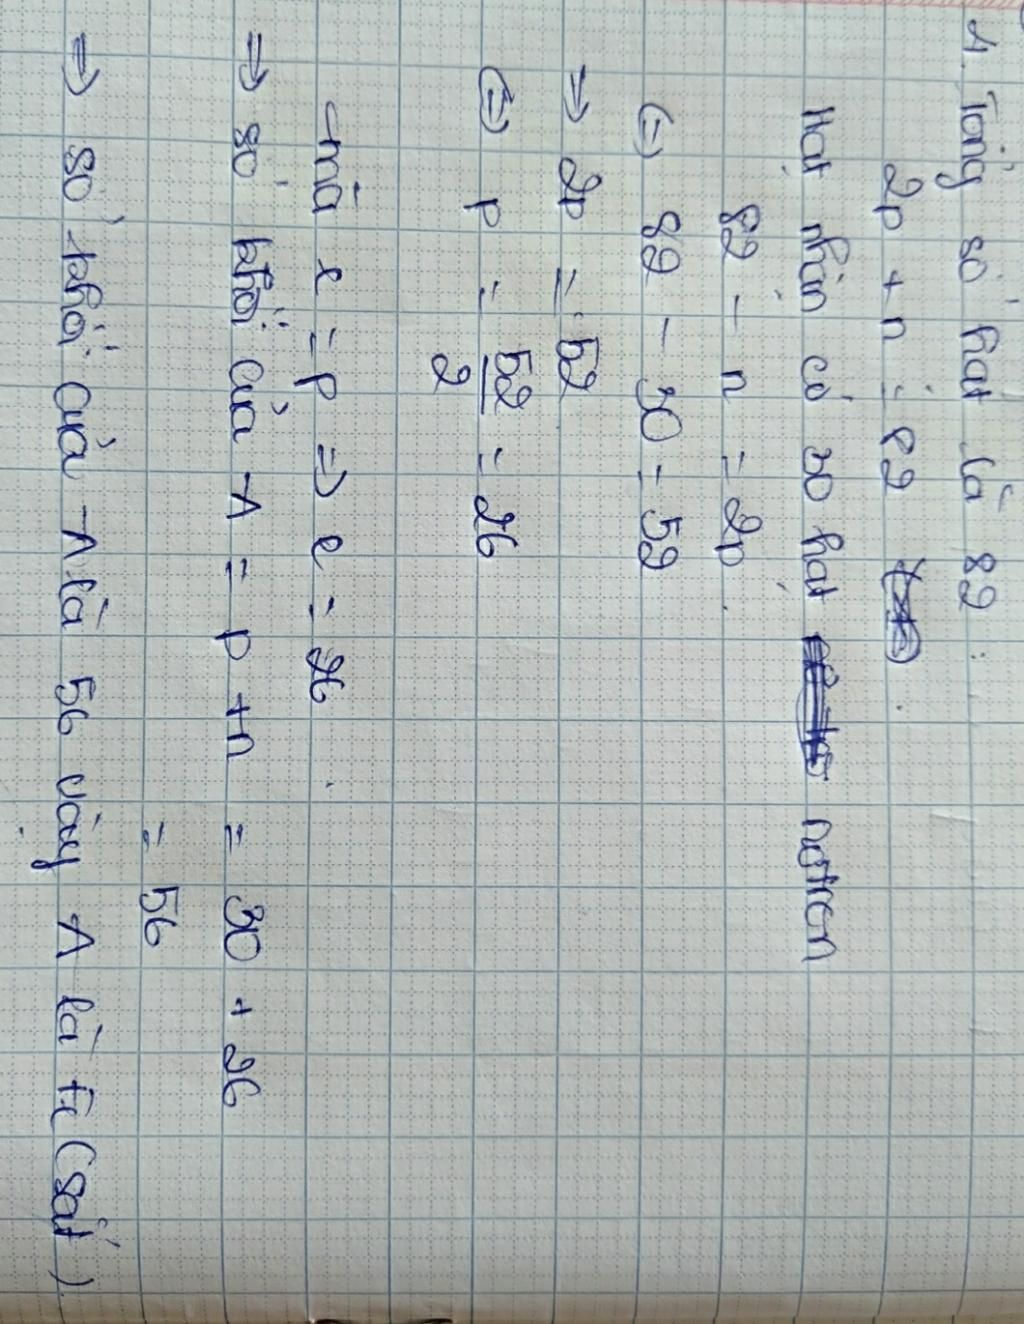 1. Tổng số hạt là 82.
2p + n = 82
Hạt nhân có 30 hạt nơtron
82 - n = 2p
(=) 82 - 30 = 52
=> 2p = 52
(=) p = 52/2 = 26
mà e = p => e = 26
=> số khối của A = p + n = 30 + 26
= 56
=> số khối của A là 56 vậy A là Fe (sắt)